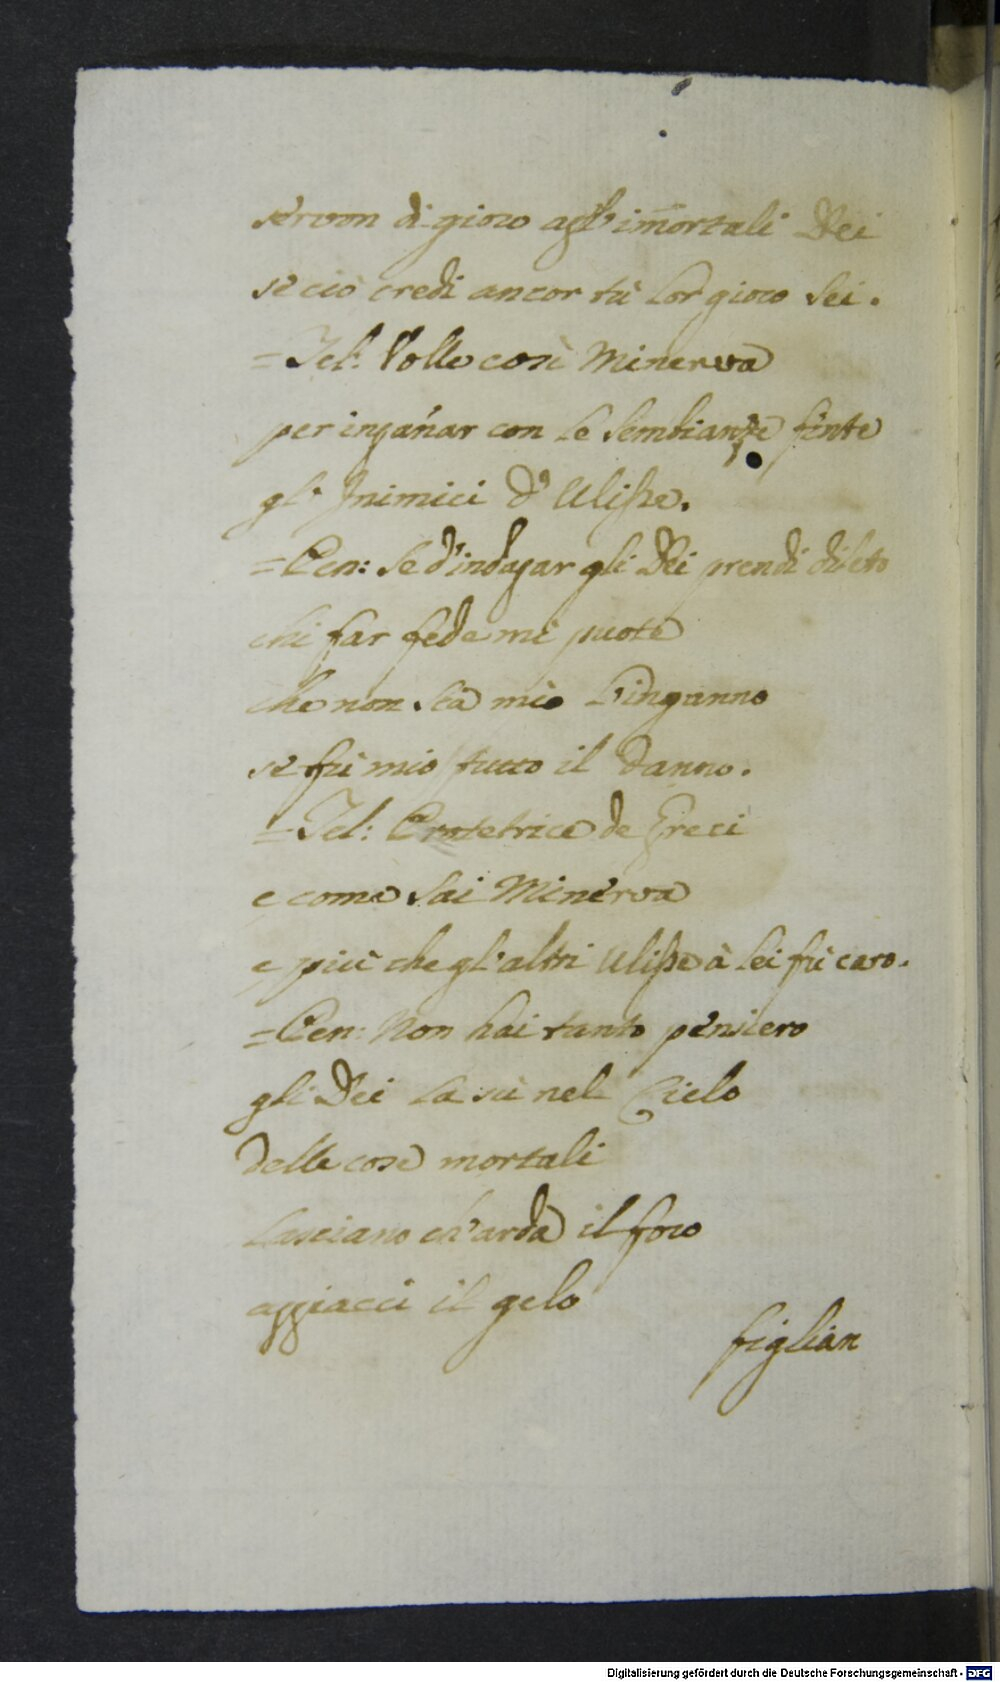 servon di gioco agl'im̄ortali Dei
se ciò credi ancor tù lor gioco sei.
=Tel: Volle così Minerva
per ingañar con le sembianze finte
gl'Inimici d'Ulisse.
=Pen: Se d'indagar gli Dei prendi dileto
chi far fede mi puote
che non sia mio l'inganno
se fù mio tutto il danno.
=Tel: Protetrice de Greci
e come sai Minerva
e più che gl'altri Ulisse à lei fù caro.
=Pen: Non hai tanto pensiero
gli Dei la sù nel Cielo
delle cose mortali
lasciano ch'arda il foco
aggiacci il gelo
figlian
Digitalisierung gefördert durch die Deutsche Forschungsgemeinschaft - DFG